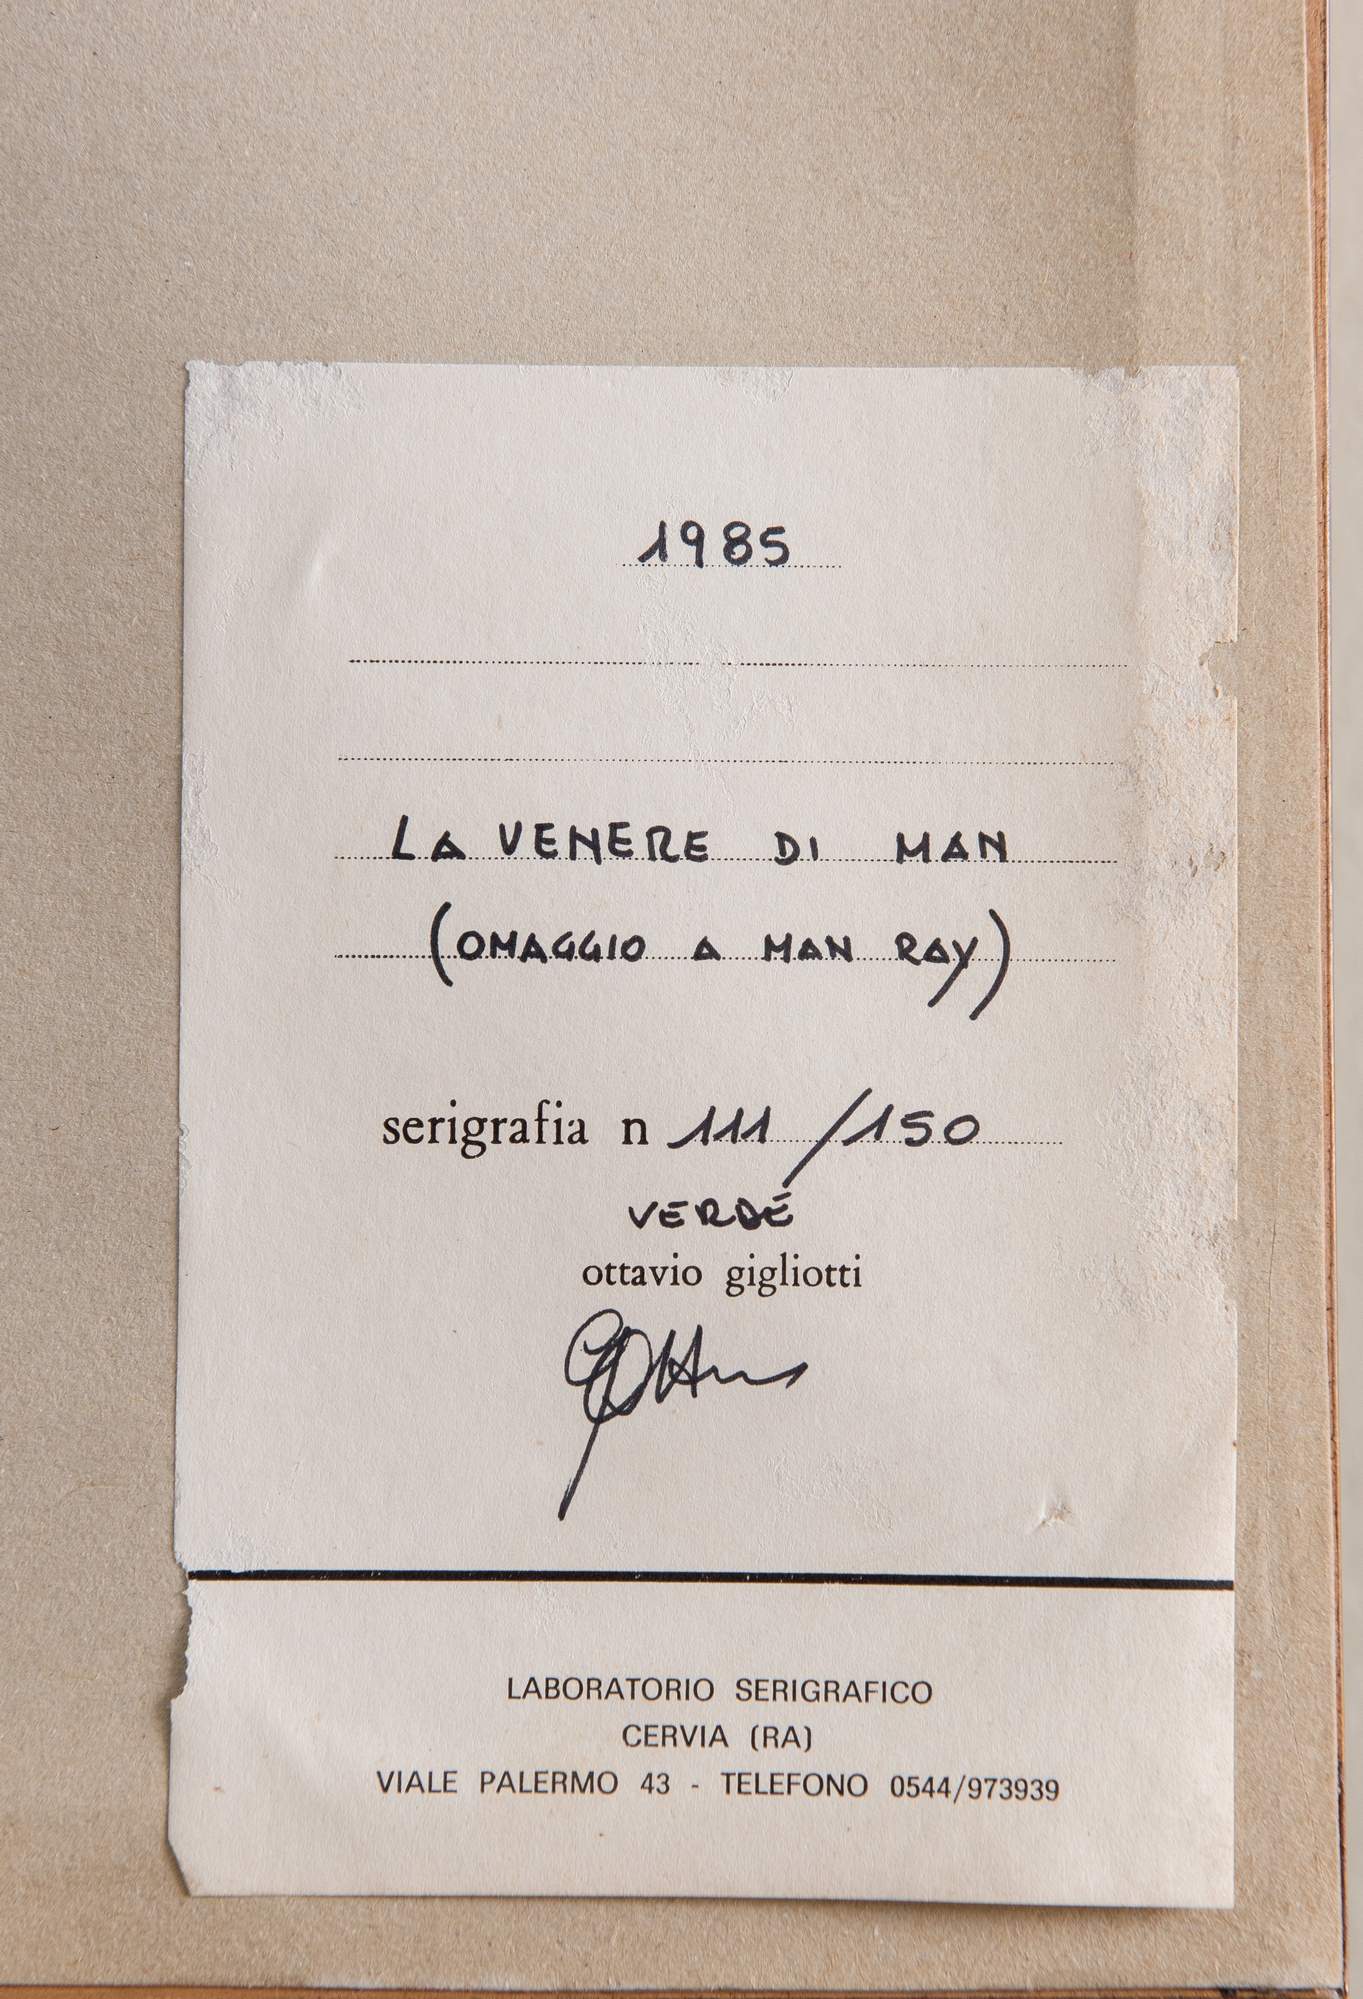 1985
LA VENERE DI MAN
(OMAGGIO A MAN RAY)
serigrafia n 111/150
VERDE
ottavio gigliotti
LABORATORIO SERIGRAFICO
CERVIA (RA)
VIALE PALERMO 43 - TELEFONO 0544/973939